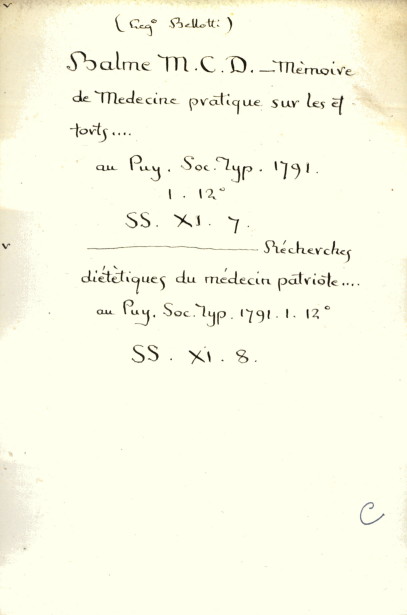 (Leg° Bellotti)
Balme M.C.D. — Mèmoire
de Medecine pratique sur les ef
forts....
au Puy. Soc. Typ. 1791.
1. 12°
SS. XI. 7.
———— Récherches
diététiques du médecin patriote....
au Puy. Soc. Typ. 1791. 1. 12°
SS. XI. 8.
C